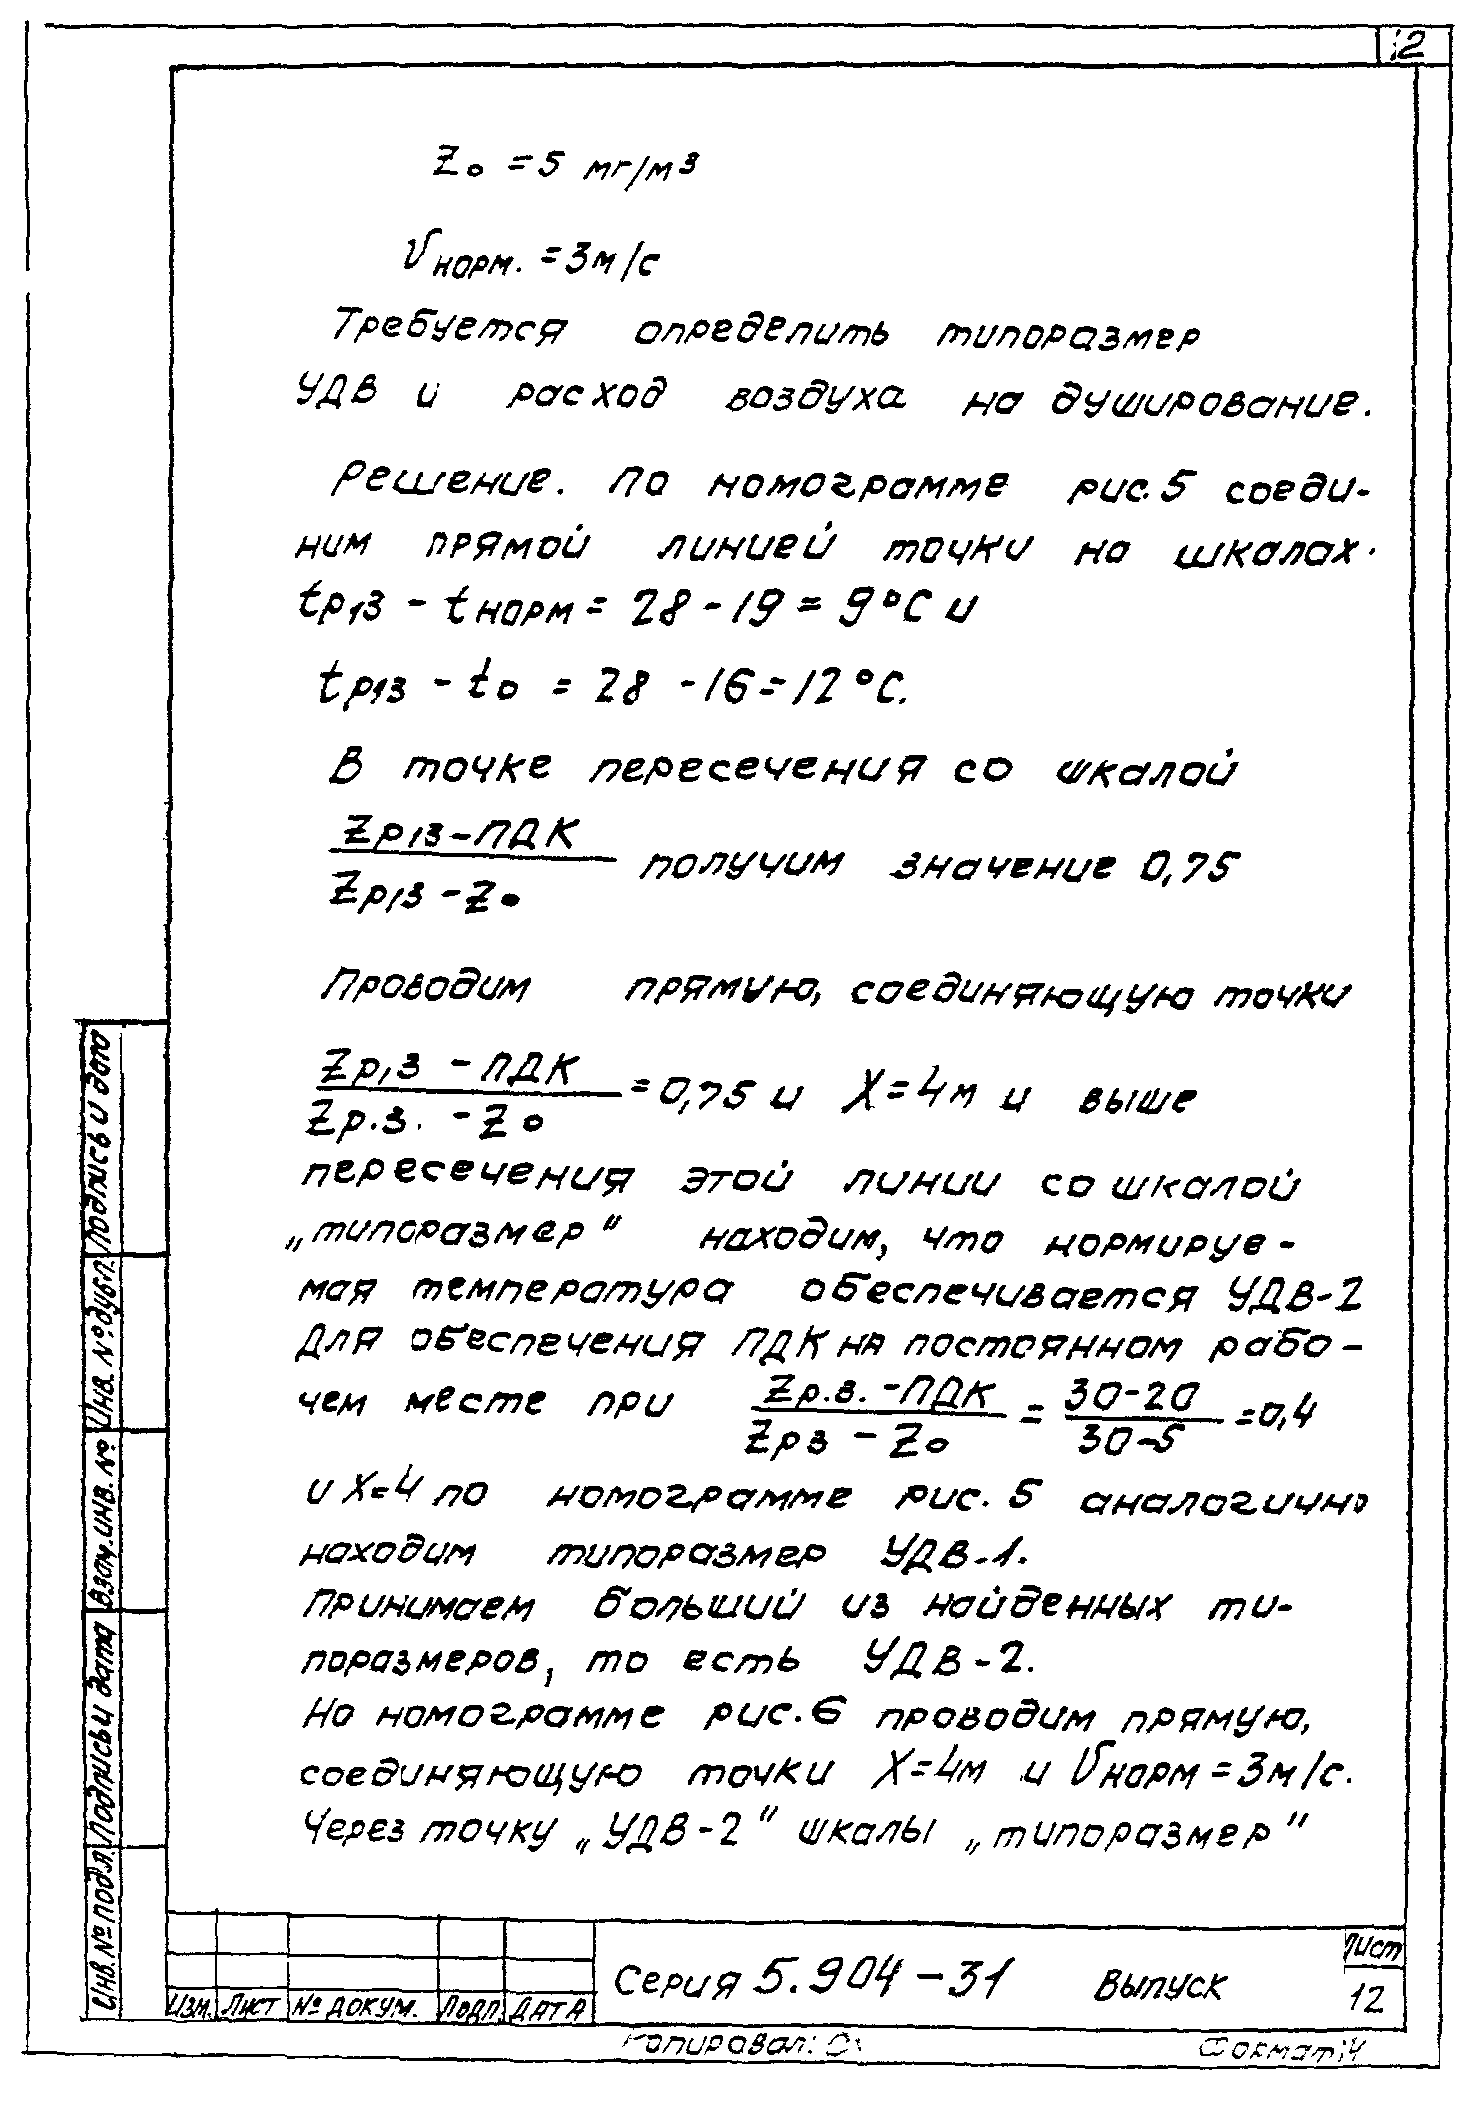 12
Zo = 5 мг/м3
Vнорм. = 3м/с
Требуется определить типоразмер
УДВ и расход воздуха на душирование.
Решение. По номограмме рис.5 соеди-
ним прямой линией точки на шкалах.
tр,13 - tнорм = 28 - 19 = 9°С и
tр13 - to = 28 - 16 = 12°С.
В точке пересечения со шкалой
Zр13-ПДК
получим значение 0,75
Zр13 - Zo
Проводим прямую, соединяющую точки
Zр,3 - ПДК
= 0,75 и X=4м и выше
Zр.з. - Zo
пересечения этой линии со шкалой
„типоразмер" находим, что нормируе-
мая температура обеспечивается УДВ-2
Для обеспечения ПДК на постоянном рабо-
чем месте при Zр.в.-ПДК / Zрз - Zo = 30-20 / 30-5 = 0,4
и X=4 по номограмме рис. 5 аналогично
находим типоразмер УДВ-1.
Принимаем больший из найденных ти-
поразмеров, то есть УДВ-2.
На номограмме рис.6 проводим прямую,
соединяющую точки X=4м и Vнорм = 3м/с.
Через точку „УДВ-2" шкалы „типоразмер"
Инв. № подл. Подпись и дата Взам. инв. № Инв. № дубл. Подпись и дата
Изм. Лист № докум. Подп. Дата
Серия 5.904-31 Выпуск
Лист
12
Копировал:
Формат